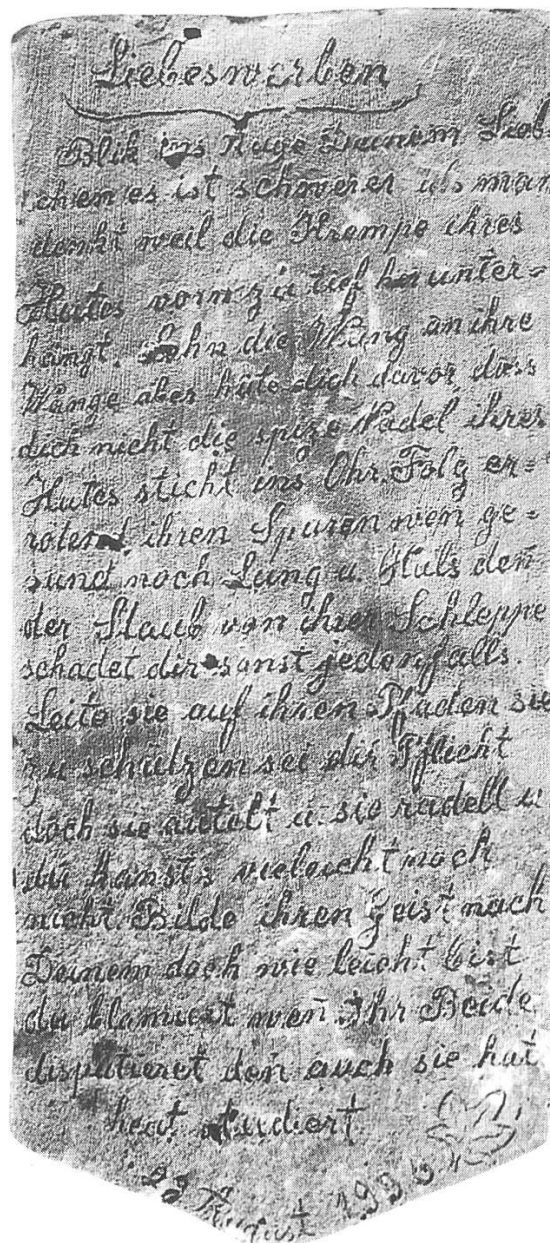 Liebeswerben
Blik ins Auge Deinem Lieb=
chen es ist schwerer als man
denkt weil die Krempe ihres
Hutes vorn zu tief hinunter=
hängt. Lehn die Wang an ihre
Wange aber hüte dich davor dass
dich nicht die spize Nadel ihres
Hutes sticht ins Ohr. Folg er=
rötend ihren Spuren wen ge=
sund noch Lung u. Hals den̄
der Staub von ihrer Schleppe
schadet dir sonst jedenfalls.
Leite sie auf ihren Pfaden sie
zu schützen sei dir Pflicht
doch sie autelt u. sie radelt u
du kansts vieleicht noch
nicht. Bilde ihren Geist nach
Deinem doch wie leicht bist
du blamiert wen̄ Ihr Beide
disputieret den̄ auch sie hat
heut studiert
29 August